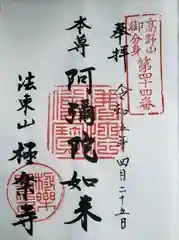 高野山
御分身
第四十四番
奉拝
令和五年四月二十五日
本尊
阿彌陀如来
法東山
極楽寺